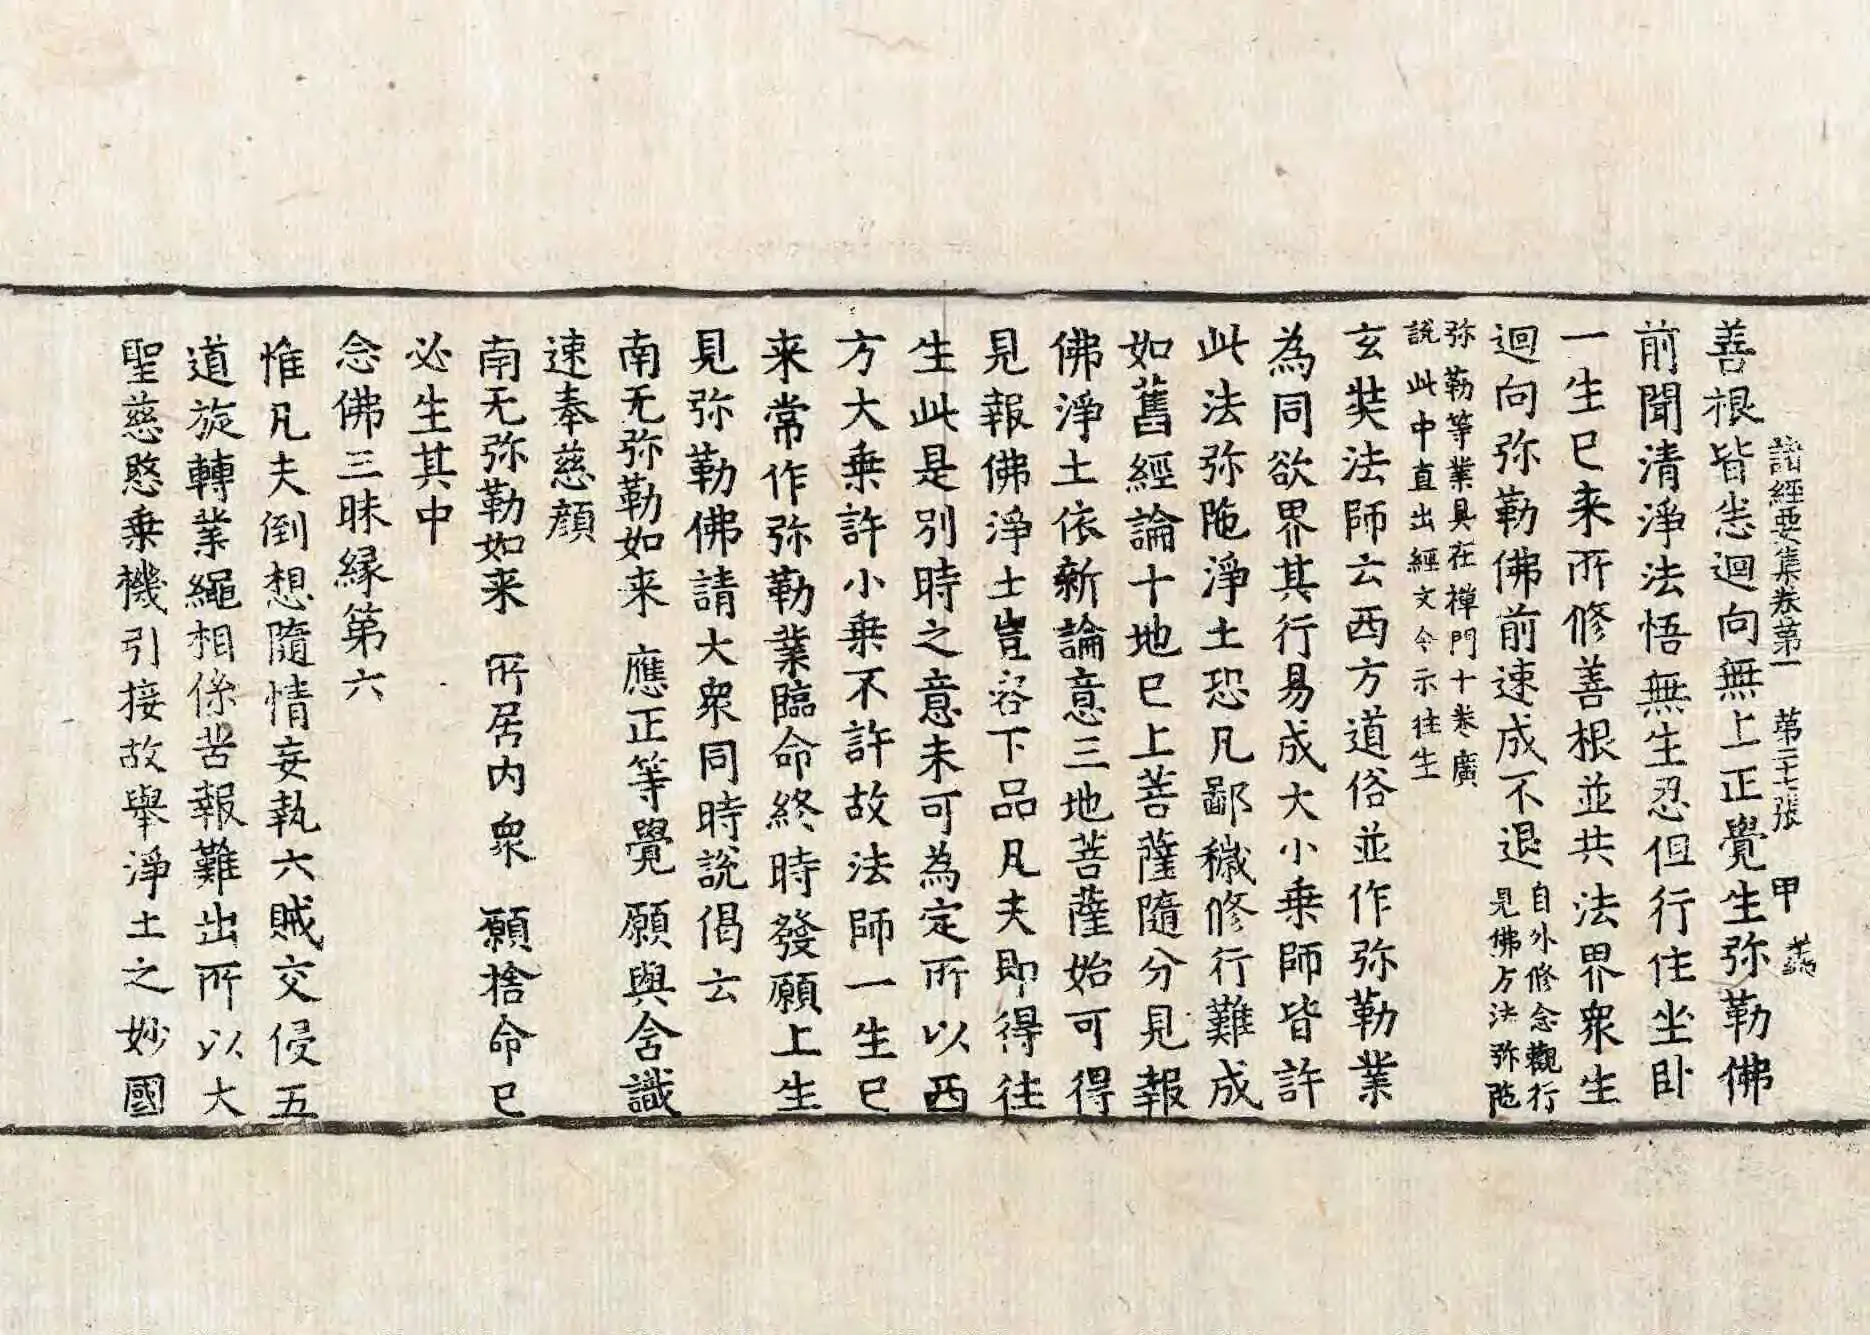 諸經要集卷第一　第三十七張　甲
善根皆悉迴向無上正覺生弥勒佛
前聞清淨法悟無生忍但行住坐卧
一生已来所修善根並共法界衆生
迴向弥勒佛前速成不退自外修念觀行
見佛方法弥陁
弥勒等業具在禅門十卷廣
說此中直出經文令示往生
玄奘法師云西方道俗並作弥勒業
為同欲界其行易成大小乗師皆許
此法弥陁淨土恐凡鄙穢修行難成
如舊經論十地已上菩薩隨分見報
佛淨土依新論意三地菩薩始可得
見報佛淨土豈容下品凡夫即得往
生此是别時之意未可為定所以西
方大乗許小乗不許故法師一生已
来常作弥勒業臨命終時發願上生
見弥勒佛請大衆同時說偈云
南无弥勒如来　應正等覺　願與含識
速奉慈顔
南无弥勒如来　所居内衆　願捨命已
必生其中
念佛三昧縁第六
惟凡夫倒想隨情妄執六賊交侵五
道旋轉業繩相係苦報難出所以大
聖慈愍乗機引接故舉淨土之妙國